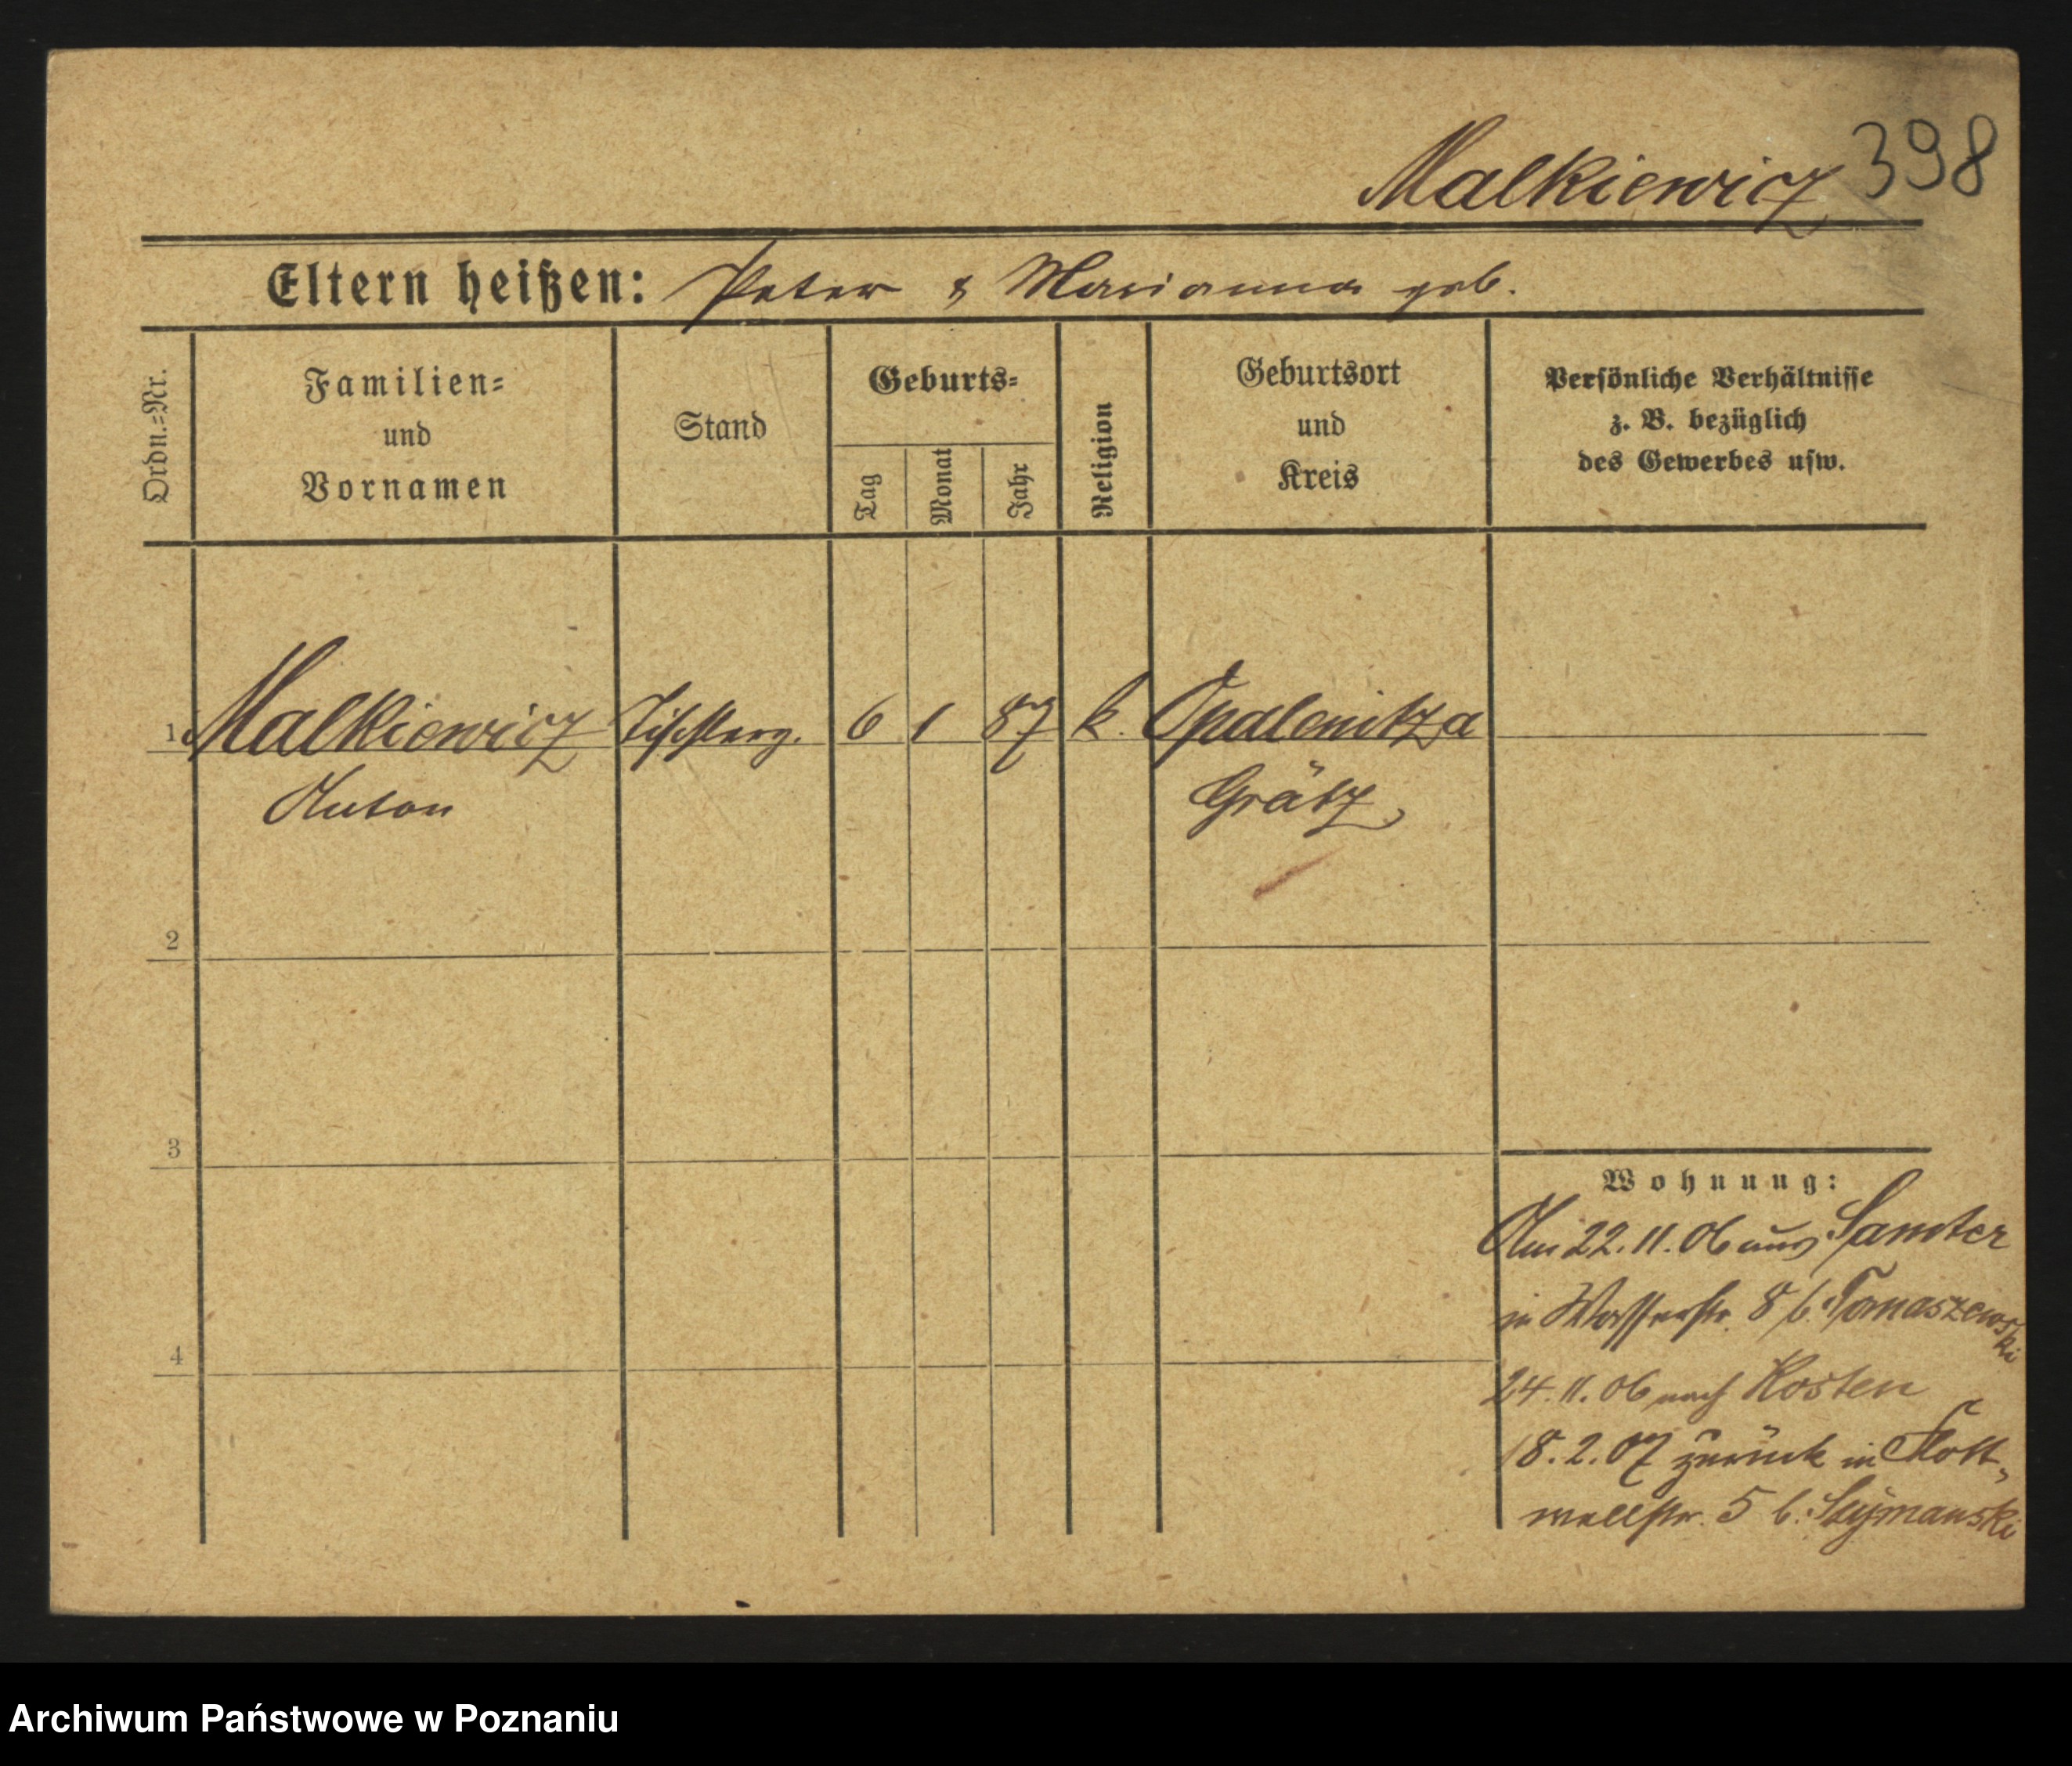 Malkiewicz 398
Eltern heißen: Peter & Marianna geb.
Ordn.=Nr.
Familien=
und
Vornamen
Stand
Geburts=
Tag
Monat
Jahr
Religion
Geburtsort
und
Kreis
Persönliche Verhältnisse
z. B. bezüglich
des Gewerbes usw.
1 Malkiewicz Tischlerg. 6 1 87 k. Opalenitza
Anton Grätz
2
3
4
Wohnung:
Am 22.11.06 aus Samter
in Wasserstr. 8 b. Tomaszewski
24.11.06 nach Kosten
18.2.07 zurück in Flott„
wellstr. 5 b. Szymanski
Archiwum Państwowe w Poznaniu